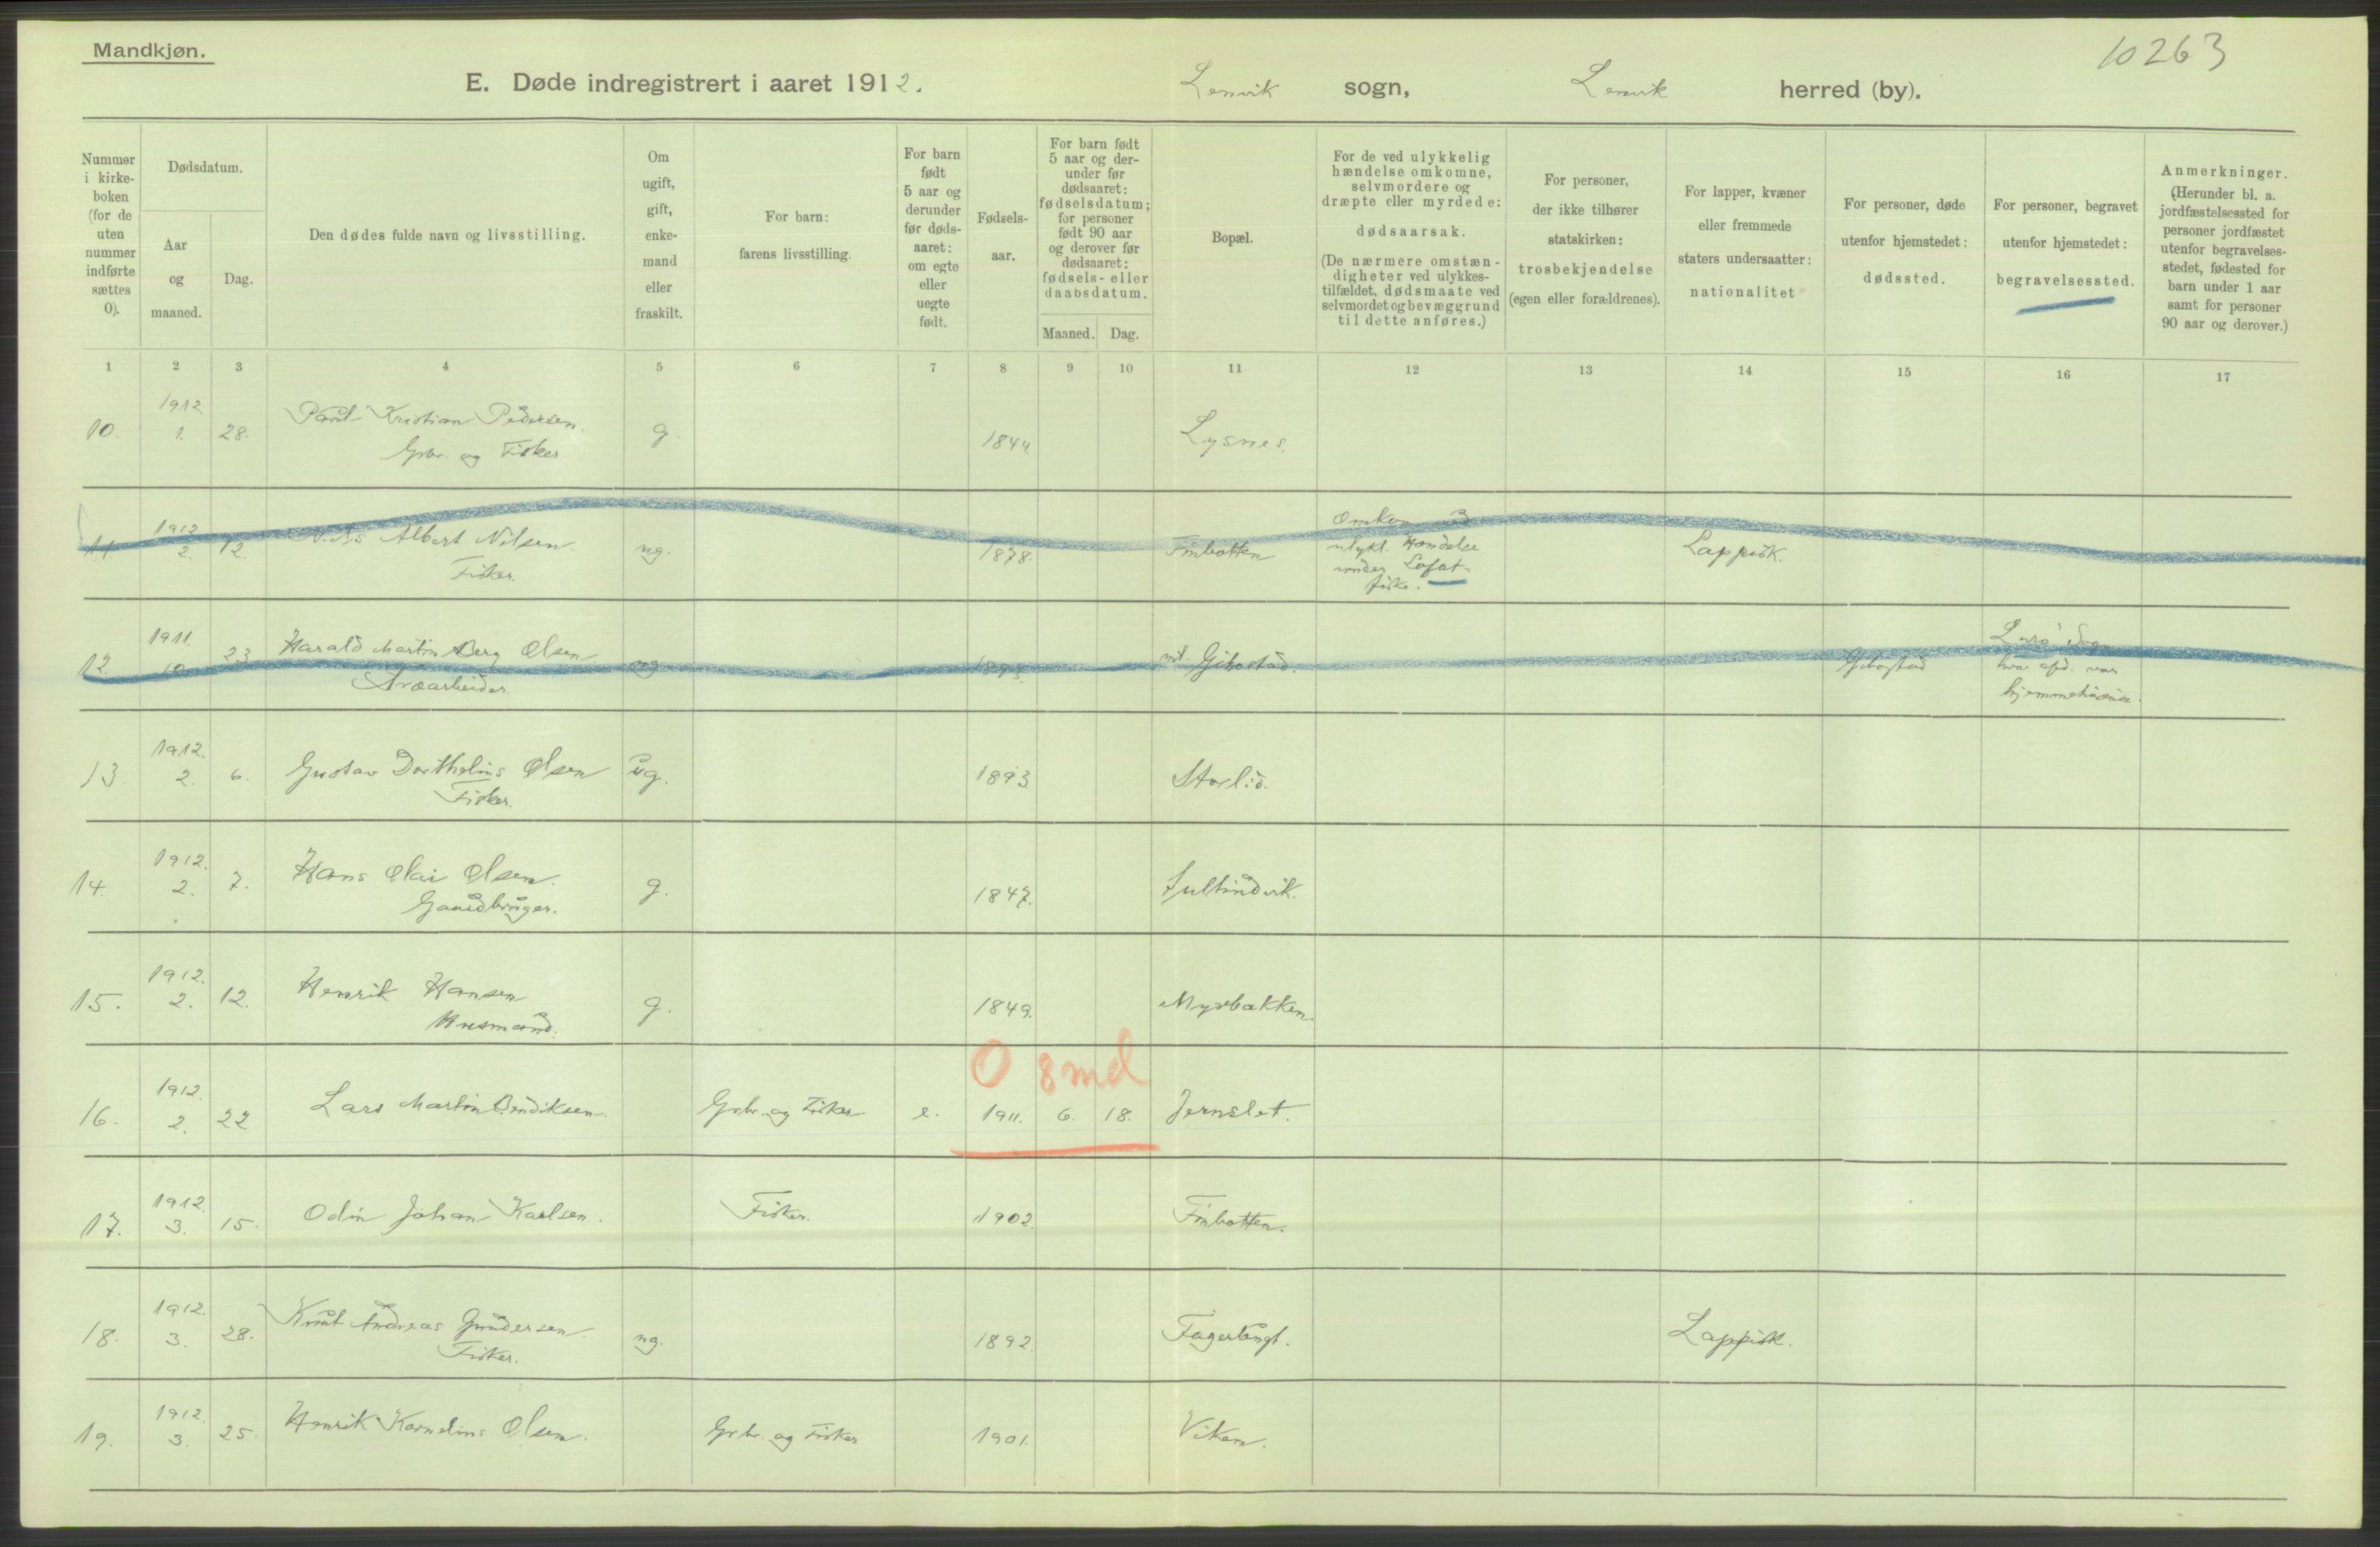 Mandkjøn.
10263
E. Døde indregistrert i aaret 1912. Lenvik sogn, Lenvik herred (by).
Nummer i kirke- boken (for de uten nummer indførte sættes 0).
Dødsdatum.
Aar og maaned.
Dag.
Den dødes fulde navn og livsstilling.
Om ugift, gift, enke- mand eller fraskilt.
For barn: farens livsstilling.
For barn født 5 aar og derunder før døds- aaret: om egte eller uegte født.
Fødsels- aar.
For barn født 5 aar og der- under før dødsaaret: fødselsdatum; for personer født 90 aar og derover før dødsaaret: fødsels- eller daabsdatum.
Maaned. Dag.
Bopæl.
For de ved ulykkelig hændelse omkomne, selvmordere og dræpte eller myrdede: dødsaarsak. (De nærmere omstæn- digheter ved ulykkes- tilfældet, dødsmaate ved selvmordet og bevæggrund til dette anføres.)
For personer, der ikke tilhører statskirken: trosbekjendelse (egen eller forældrenes).
For lapper, kvæner eller fremmede staters undersaatter: nationalitet
For personer, døde utenfor hjemstedet: dødssted.
For personer, begravet utenfor hjemstedet: begravelsessted.
Anmerkninger. (Herunder bl. a. jordfæstelsessted for personer jordfæstet utenfor begravelses- stedet, fødested for barn under 1 aar samt for personer 90 aar og derover.)
1 2 3 4 5 6 7 8 9 10 11 12 13 14 15 16 17
10. 1912 1. 28. Paul Kristian Pedersen. g. 1844. Lysnes.
Grbr. og Fisker
11. 1912 2. 12. Nils Albert Nilsen. ug. 1878. Finbotten Omkom ved Lappisk.
Fisker. ulykl. Hændelse
under Lofot-
fiske.
12. 1911. 10. 23 Harald Martin Berg Olsen ug mt. Gibostad. Gibostad Sogn
hvor afd. var
hjemmehørende.
13. 1912. 2. 6. Gustav Dorthelius Olsen ug. 1893 Storlid.
Fisker.
14. 1912. 2. 7. Hans Olai Olsen. g. 1847. Sultindvik.
Gaardbruger.
15. 1912. 2. 12. Henrik Hansen g. 1849. Myrbakken.
Husmand.
0 8 md
16. 1912. 2. 22 Lars Martin Bendiksen. Grbr. og Fisker e. 1911. 6. 18. Jernslet.
17. 1912. 3. 15. Odin Johan Karlsen. Fisker. 1902. Finbotten.
18. 1912. 3. 28. Knut Andreas Gundersen. ug. 1892. Lappisk.
Fisker.
19. 1912. 3. 25. Henrik Kornelius Olsen. Grbr. og Fisker 1901. Viken.